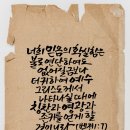 너희 믿음의 확실함은
불로 연단하여도
없어질 금보다
더 귀하여 예수
그리스도께서
나타나실 때에
칭찬과 영광과
존귀를 얻게 할
것이니라 (벧전1:7)